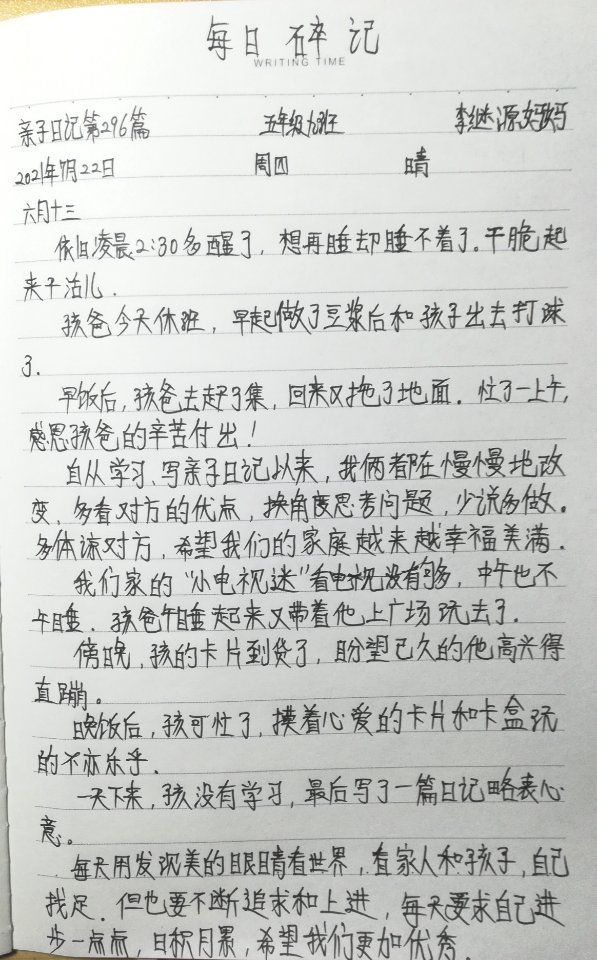 每日碎记
WRITING TIME
亲子日记第296篇 五年级九班 李继源妈妈
2021年7月22日 周四 晴
六月十三
依旧凌晨2:30多醒了，想再睡却睡不着了.干脆起
来干活儿.
孩爸今天休班，早起做了豆浆后和孩子出去打球
了.
早饭后，孩爸去赶了集，回来又拖了地面.忙了一上午,
感恩孩爸的辛苦付出！
自从学习、写亲子日记以来，我俩都在慢慢地改
变，多看对方的优点，换角度思考问题，少说多做。
多体谅对方，希望我们的家庭越来越幸福美满.
我们家的“小电视迷”看电视没有够，中午也不
午睡.孩爸午睡起来又带着他上广场玩去了.
傍晚，孩的卡片到货了，盼望已久的他高兴得
直蹦。
晚饭后，孩可忙了，摸着心爱的卡片和卡盒玩
的不亦乐乎.
一天下来，孩没有学习，最后写了一篇日记略表心
意。
每天用发现美的眼睛看世界，看家人和孩子，自己
找足.但也要不断追求和上进，每天要求自己进
步一点点，日积月累，希望我们更加优秀.